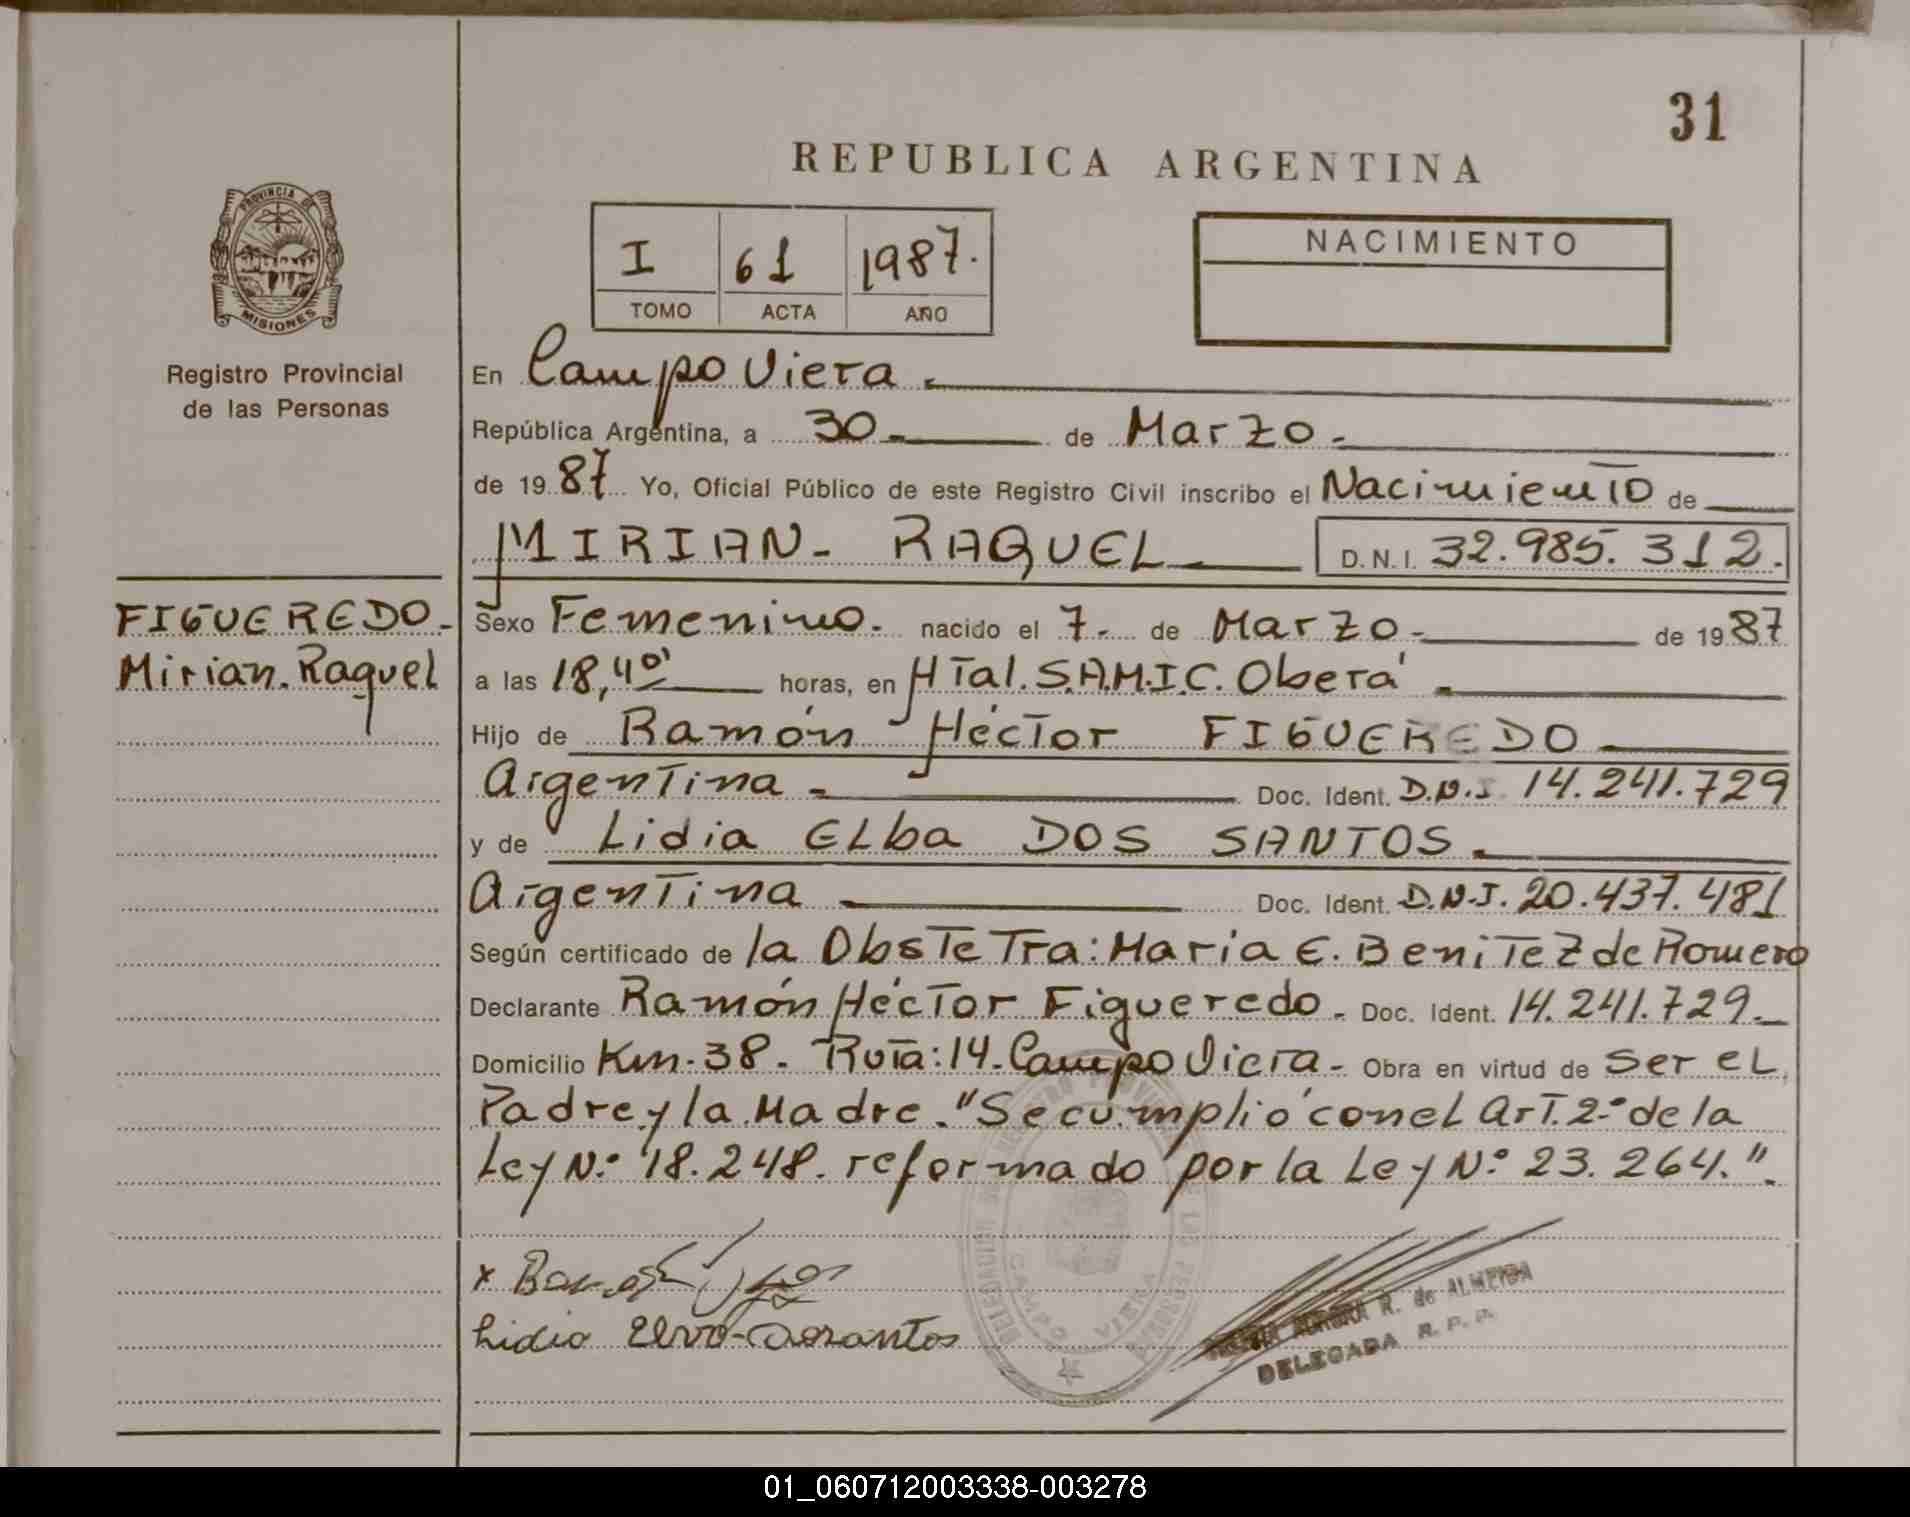 31
REPUBLICA ARGENTINA
PROVINCIA DE
MISIONES
Registro Provincial
de las Personas
I 61 1987.
TOMO ACTA AÑO
NACIMIENTO
En Campo Viera.
República Argentina, a 30 de Marzo.
de 1987 Yo, Oficial Público de este Registro Civil inscribo el Nacimiento de
MIRIAN- RAQUEL D.N.I. 32.985.312.
FIGUEREDO.
Mirian.Raquel
Sexo Femenino. nacido el 7. de Marzo. de 1987
a las 18,40' horas, en HTal. S.A.M.I.C. Oberá.
Hijo de Ramón Héctor FIGUEREDO
Argentina Doc. Ident. D.N.I. 14.241.729
y de Lidia ELba DOS SANTOS.
Argentina Doc. Ident. D.N.I. 20.437.481
Según certificado de la ObsTeTra: Maria E. BeniTeZ de Romero
Declarante Ramón Héctor Figueredo. Doc. Ident. 14.241.729.
Domicilio Km. 38. RuTa: 14. Campo Viera. Obra en virtud de ser eL
Padre y la Madre. "Se cumplió con el ArT. 2.º de la
Ley N.º 18.248. reformado por la Ley N.º 23.264.".
CAMPO VIERA
Lidia
R. de ALMEIDA
DELEGADA R. P. P.
01_060712003338-003278